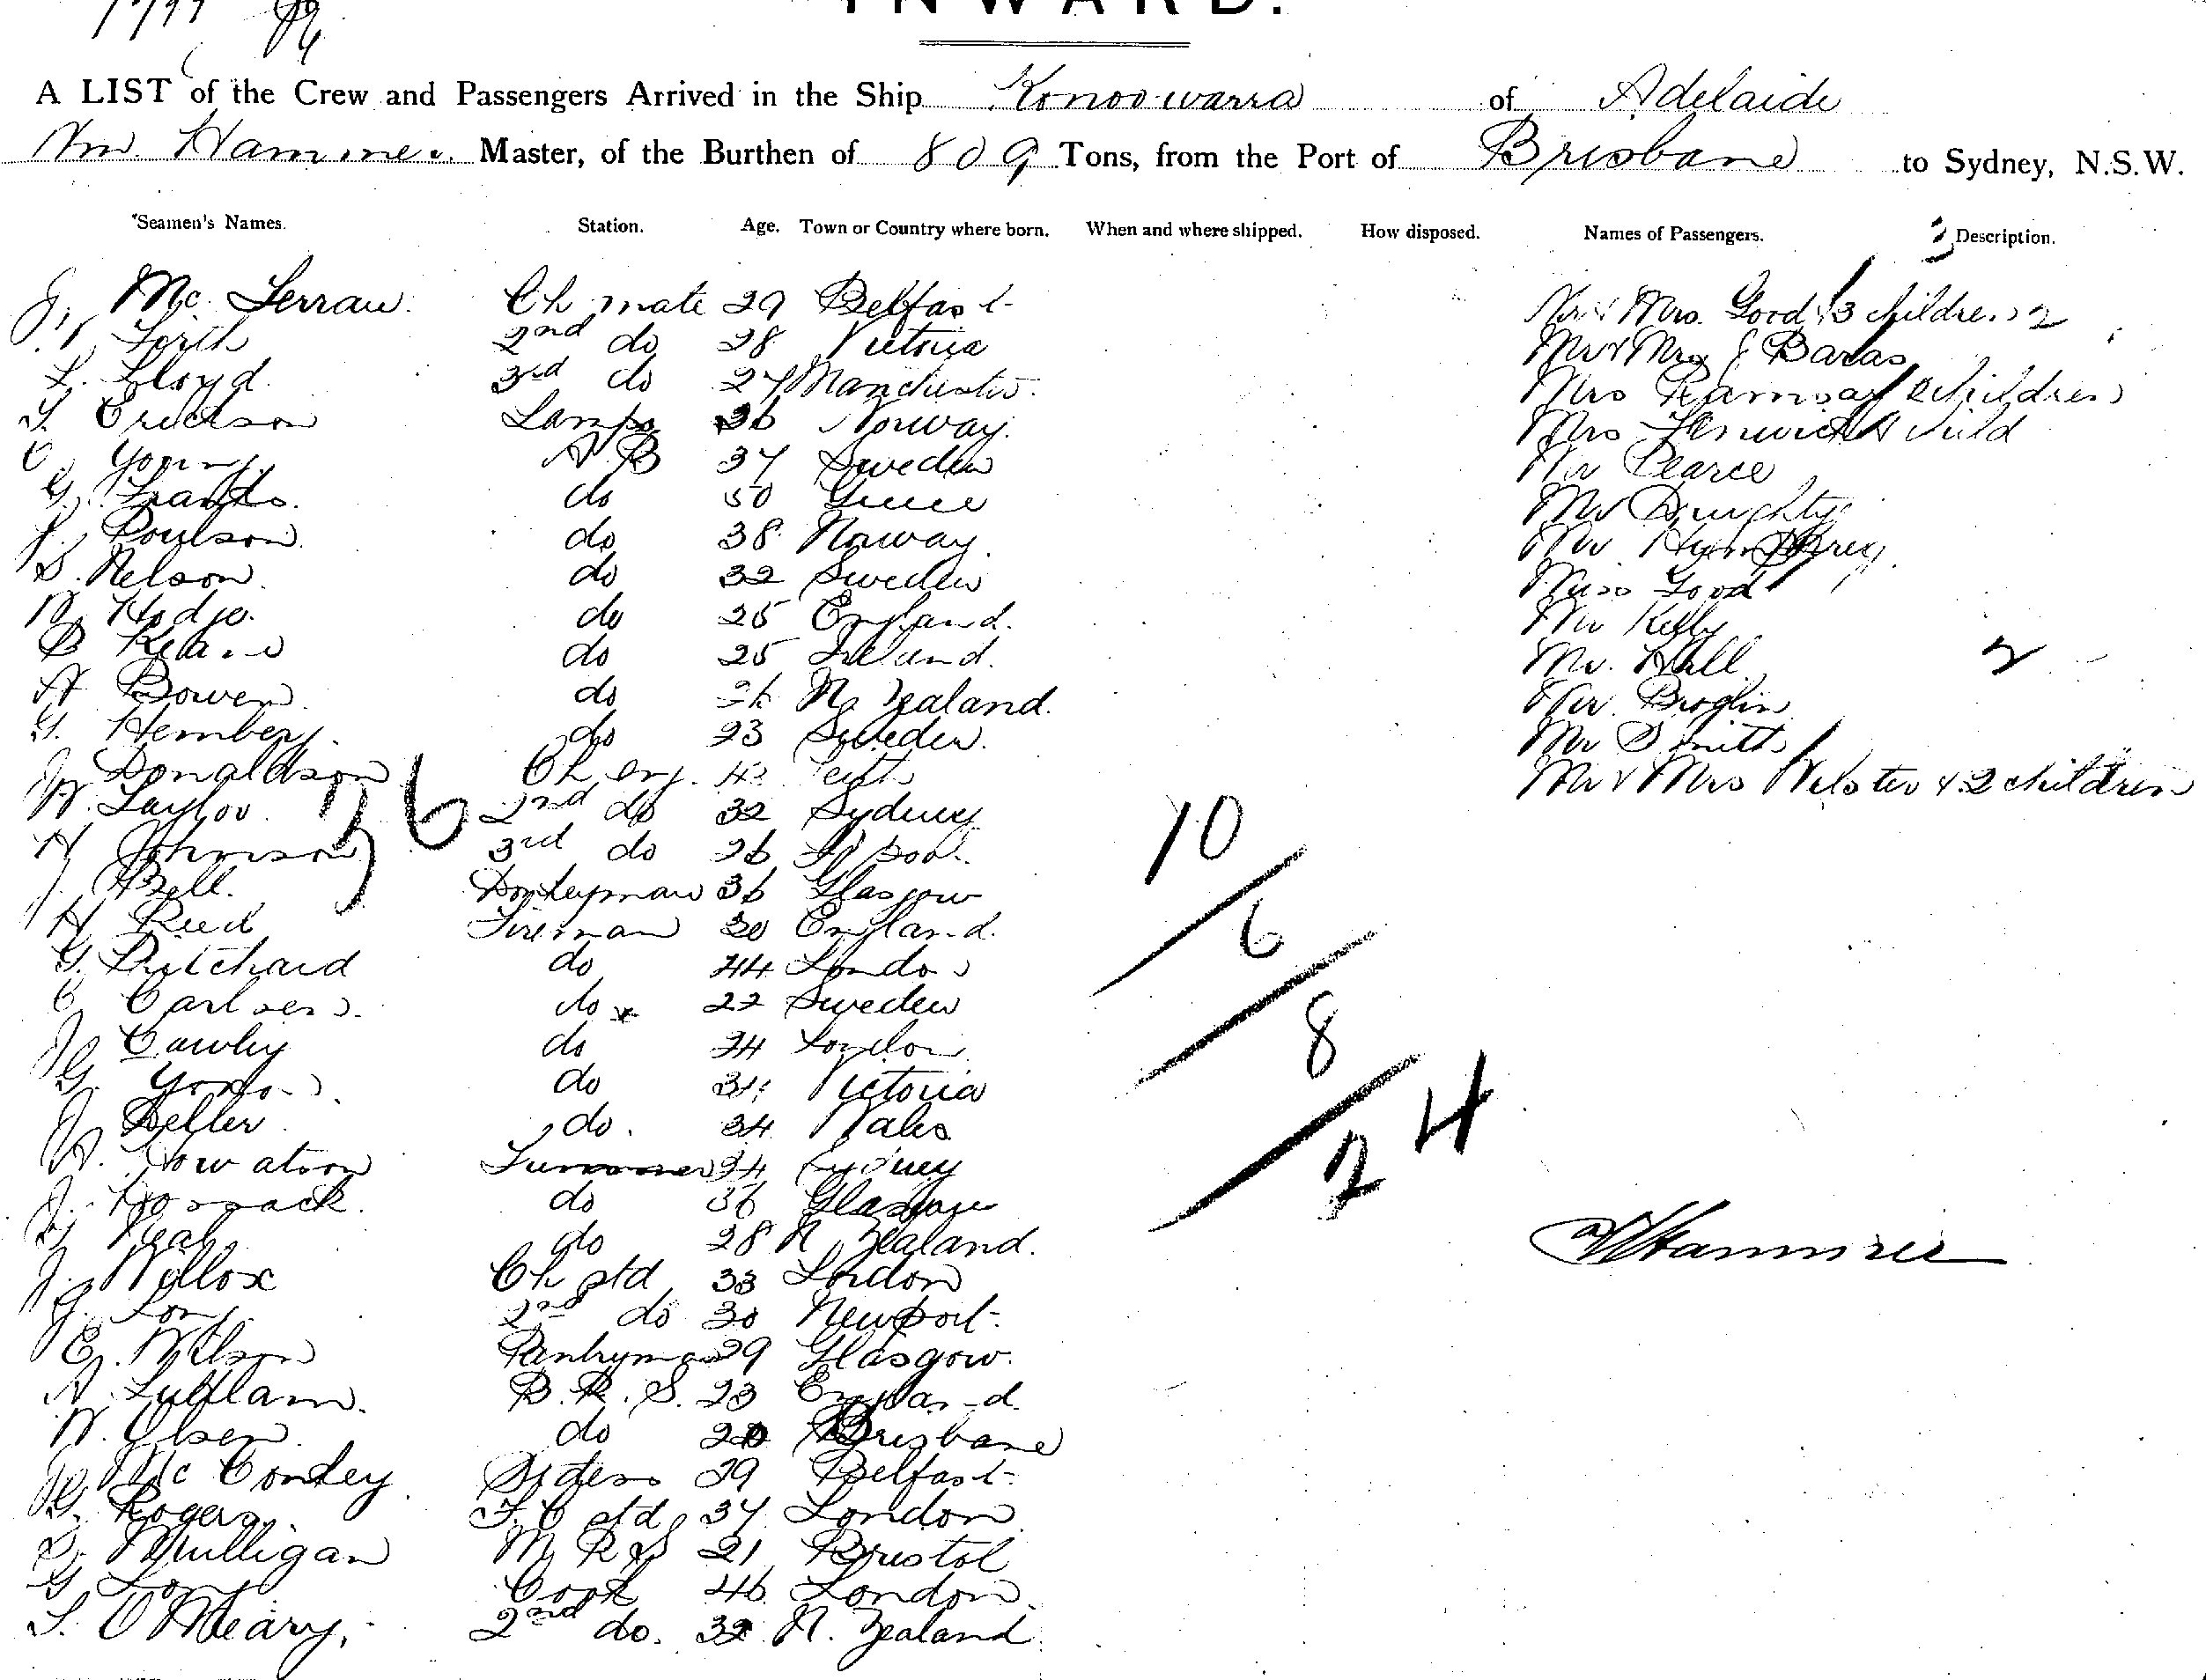 INWARD.
A LIST of the Crew and Passengers Arrived in the Ship Konoowarra of Adelaide
Wm. Hammer Master, of the Burthen of 809 Tons, from the Port of Brisbane to Sydney, N.S.W.
Seamen's Names. Station. Age. Town or Country where born. When and where shipped. How disposed. Names of Passengers. Description.
Mc. Ch mate 29 Belfast Mr & Mrs. Good & 3 children 2
Forth 2nd do 28 Victoria Mr & Mrs J Baras
L. Lloyd 3rd do 27 Manchester Mrs Ramsay children
Erickson Lamps 36 Norway. Mrs Fenwick & child
Young A B 37 Sweden Mr Pearce
G. do 50 Greece Mr
J. Poulson do 38 Norway. Mr Humphrey
S. Nelson do 32 Sweden Miss Good
do 25 England. Mr Kelly
B do 25 Ireland. Mr. Hall 2
A Bowen do N. Zealand. Mr.
G. Hemberg. do 23 Sweden. Mr Smith
J. Donaldson Ch eng. Leith Mr & Mrs Webster & 2 children
W. Taylor 2nd do 32 Sydney 10
H Johnson 3rd do 26 L'pool.
J. Bell. Donkeyman 36 Glasgow
H Reed Fireman 30 England. 6
G. Pritchard do 44 London
C Carlsen do x 22 Sweden
J Cawley do 34 London 8
G. do 34 Victoria
J do. 34 Wales 24
Howatson Trimmer 34 Sydney
J. Hossack. do 36 Glasgow
Neal do 28 N Zealand. W Hammer
J. Willox Ch std 33 London
G. Long 2nd do 30 Newport
E. Wilson Pantryman 29 Glasgow.
A. Ludlam. B. R. S. 23 England.
W. Olsen do 20 Brisbane
Mc Conkey Stdess 29 Belfast
G. Rogers. F. C std 37 London
Mulligan M R S 21 Bristol
G Long Cook 46 London.
O'Meary. 2nd do. 32 N. Zealand.